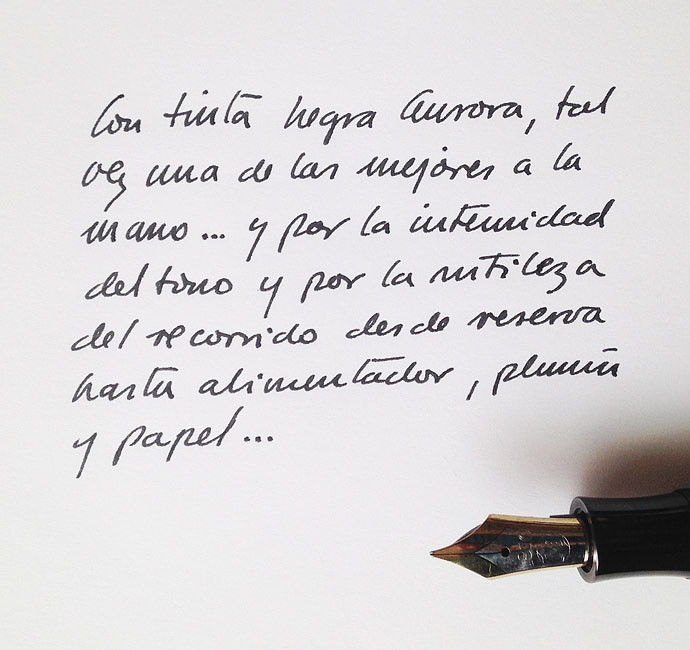 Con tinta negra Aurora, tal
vez una de las mejores a la
mano... y por la intensidad
del tono y por la sutileza
del recorrido desde reserva
hasta alimentador, plumín
y papel...